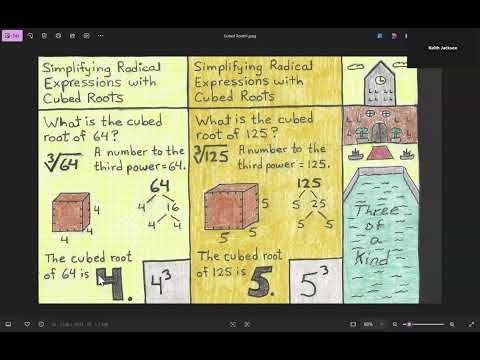 Cubed Roots1.jpeg
Keith Jackson
Simplifying Radical
Expressions with
Cubed Roots
What is the cubed
root of 64?
3√64 A number to the
third power = 64.
64
4 16
4 4
4
4
4
The cubed root
of 64 is 4.
4³
Simplifying Radical
Expressions with
Cubed Roots
What is the cubed
root of 125?
3√125 A number to the
third power = 125.
125
5 25
5 5
5
5
5
The cubed root
of 125 is 5.
5³
Three
of
a
Kind
80%